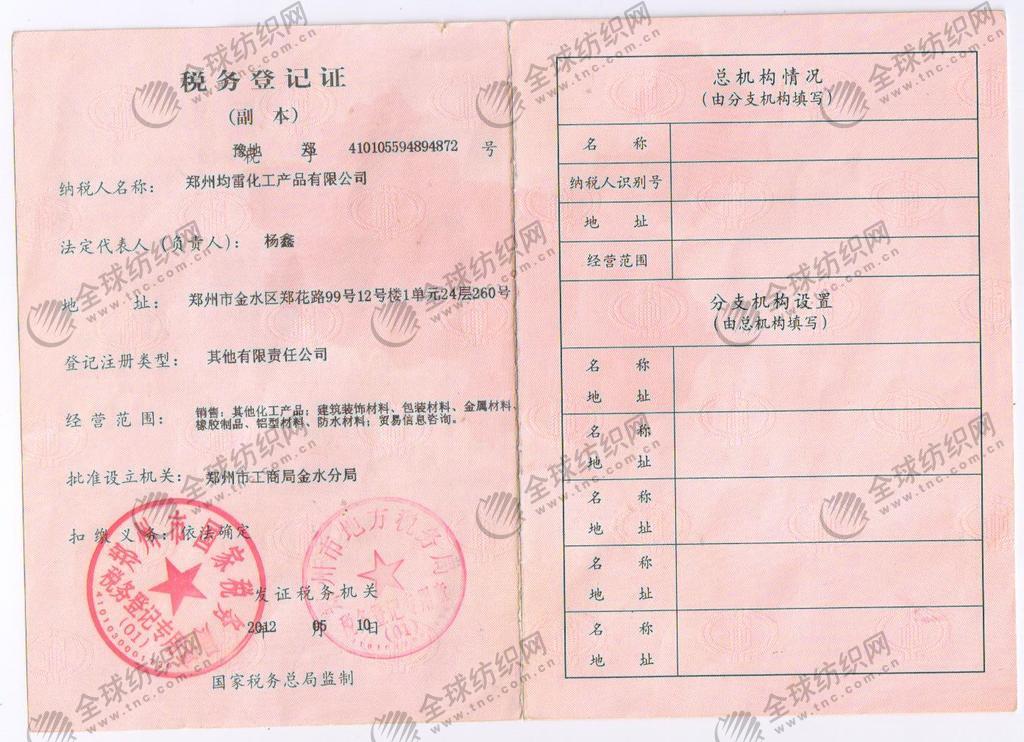 税务登记证
(副 本)
豫地 郑 410105594894872 号
税 字
纳税人名称: 郑州均雷化工产品有限公司
法定代表人(负责人): 杨鑫
地 址: 郑州市金水区郑花路99号12号楼1单元24层260号
登记注册类型: 其他有限责任公司
经营范围: 销售:其他化工产品;建筑装饰材料、包装材料、金属材料、
橡胶制品、铝型材料、防水材料;贸易信息咨询。
批准设立机关: 郑州市工商局金水分局
扣缴义务: 依法确定
发证税务机关
2012 年 05 月 10 日
国家税务总局监制
郑州市国家税务局
税务登记专用章
(01)
州市地方税务局
税务登记专用章
(01)
总机构情况
(由分支机构填写)
名 称
纳税人识别号
地 址
经营范围
分支机构设置
(由总机构填写)
名 称
地 址
名 称
地 址
名 称
地 址
名 称
地 址
名 称
地 址
全球纺织网
www.tnc.com.cn